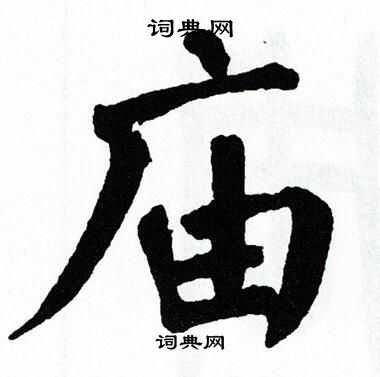 词典网
庙
词典网